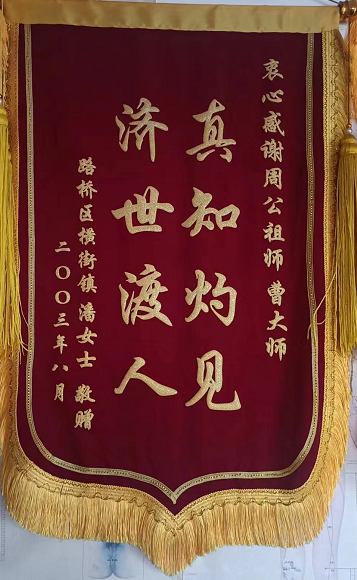 衷心感谢周公祖师曹大师
真知灼见
济世渡人
路桥区横街镇潘女士 敬赠
二〇〇三年八月